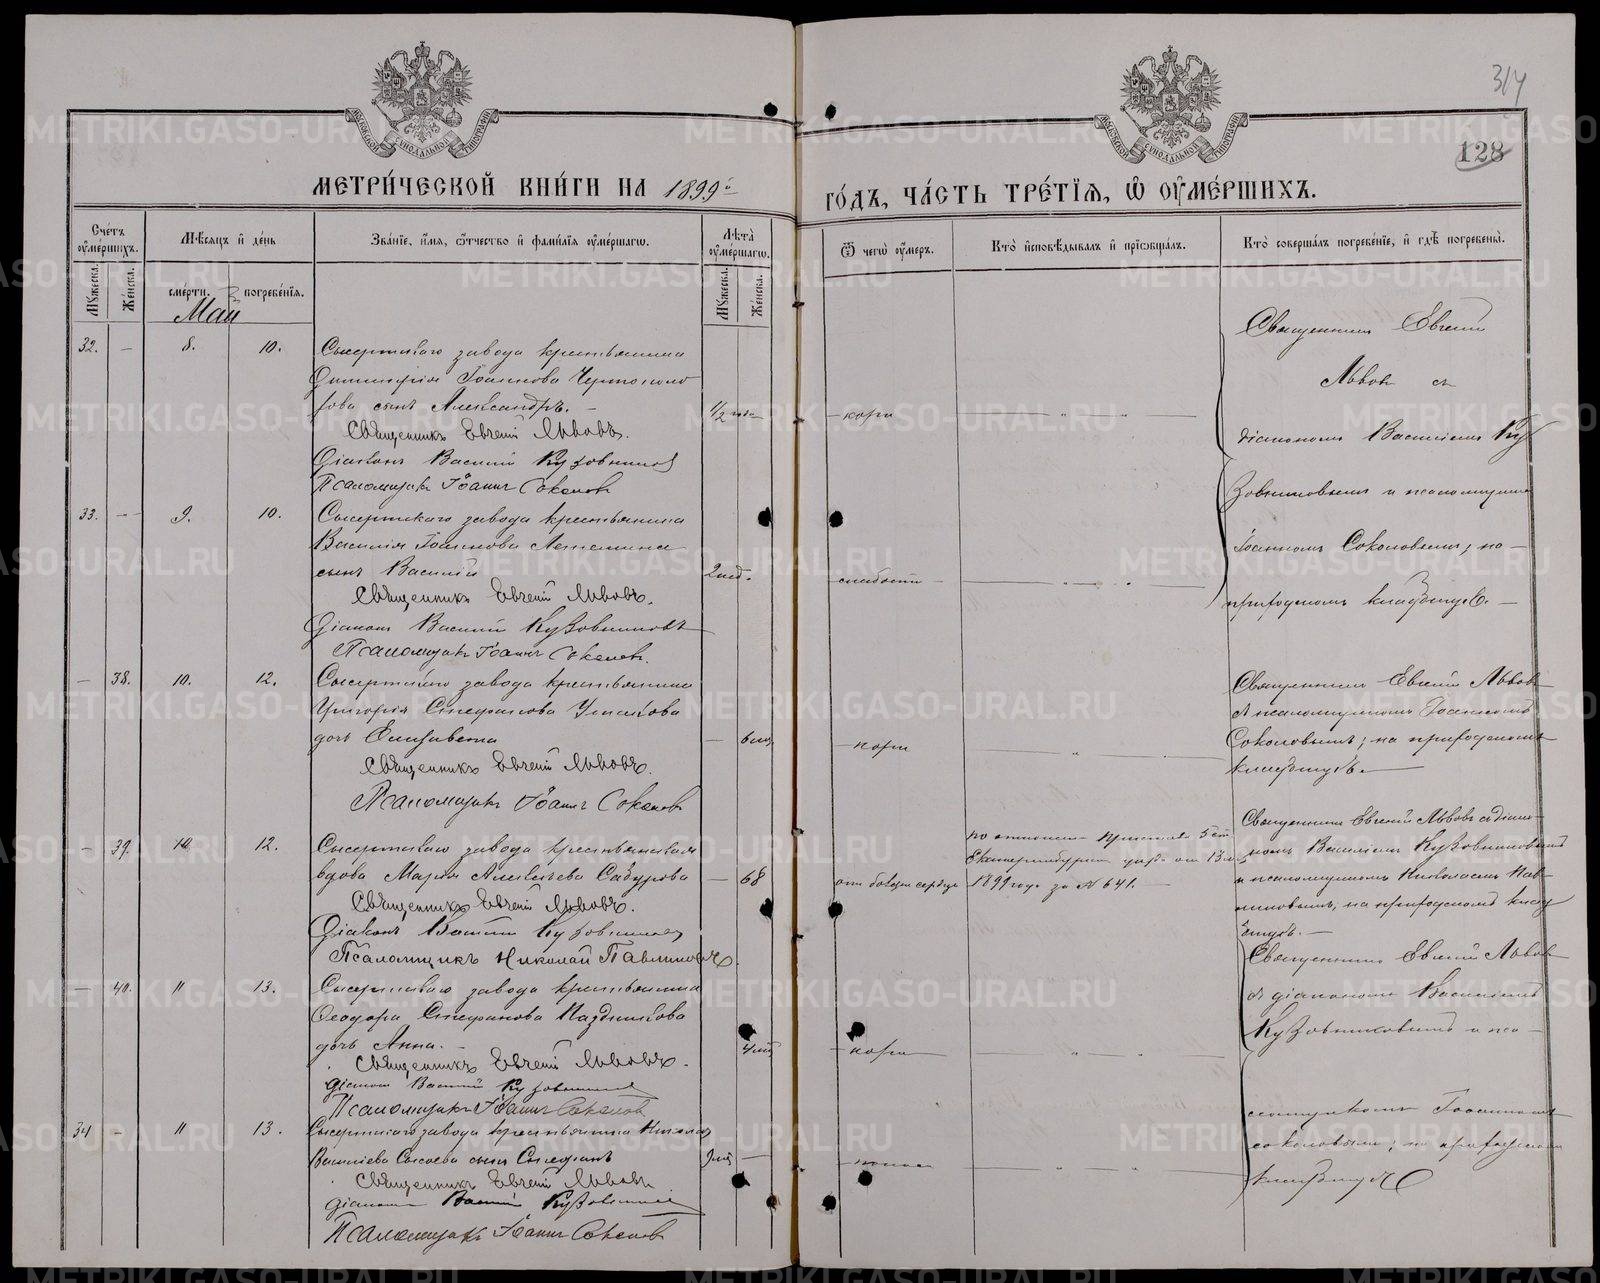 314
128
МЕТРИ́ЧЕСКОЙ КНИ́ГИ НА 1899й
ГО́ДЪ, ЧА́СТЬ ТРЕ́ТІЯ, Ѡ ОУМЕ́РШИХЪ.
Сче́тъ оуме́ршихъ.
Мꙋ́жеска.
Же́нска.
Мѣ́сяцъ и де́нь
сме́рти.
погребе́нія.
Зва́нїе, и́мя, ѻ́тчество и фами́лїя оуме́ршагѡ.
Лѣ́та оуме́ршагѡ.
Мꙋ́жеска.
Же́нска.
Ѿ чегѡ̀ оу́меръ.
Кто̀ исповѣ́дывалъ и прїѡбща́лъ.
Кто̀ соверша́лъ погребе́нїе, и гдѣ̀ погребены̀.
Май
32. – 8. 10. Сысертскаго завода крестьянина
Димитрія Іоаннова Черепоно
сынъ Александръ. – 1/2 года – кори
Священникъ Евгеній Львовъ.
Діаконъ Василій Кузовниковъ
Псаломщикъ Іоаннъ Соколовъ
Священник Евгеній
Львов с
діаконом Василіем Ку
зовниковым и псаломщиком
Іоанном Соколовым; на
приходском кладбищѣ. –
33. – 9. 10. Сысертскаго завода крестьянина
Василія Іоаннова Летемина
сынъ Василій 2 нед. – слабости –
Священникъ Евгеній Львовъ.
Діаконъ Василій Кузовниковъ
Псаломщикъ Іоаннъ Соколовъ.
– 38. 10. 12. Сысертскаго завода крестьянина
Григорія Стефанова Ушакова
дочь Елизавета – 6 мѣс. – кори
Священникъ Евгеній Львовъ.
Псаломщикъ Іоаннъ Соколовъ
Священник Евгеній Львов
с псаломщиком Іоанном
Соколовым; на приходском
кладбищѣ. –
– 39. 10. 12. Сысертскаго завода крестьянская
вдова Марія Алексѣева Сабурова – 68 от болѣзни сердца
Священникъ Евгеній Львовъ.
Діаконъ Василій Кузовников
Псаломщикъ Николай Павлиновъ.
по отношен. Пристава 5 ст.
Екатеринбургск. уѣзда от 13
1899 года за № 641. –
Священник Евгеній Львовъ с діако
ном Василіем Кузовниковым
и псаломщиком Николаем Пав
линовым, на приходском клад
бищѣ. –
– 40. 11 13. Сысертскаго завода крестьянина
Ѳеодора Стефанова Паздникова
дочь Анна. – 4 мѣс. – кори
Священникъ Евгеній Львовъ.
Діаконъ Василій Кузовников
Псаломщикъ Іоаннъ Соколовъ
Священник Евгеній Львов
с діаконом Василіем
Кузовниковым и пса–
ломщиком Іоанном
Соколовым; на приходском
кладбищѣ
34 – 11 13. Сысертскаго завода крестьянина Николая
Василіева сынъ Стефанъ – поноса
Священникъ Евгеній Львовъ
Діаконъ Василій Кузовников
Псаломщикъ Іоаннъ Соколовъ
METRIKI.GASO-URAL.RU